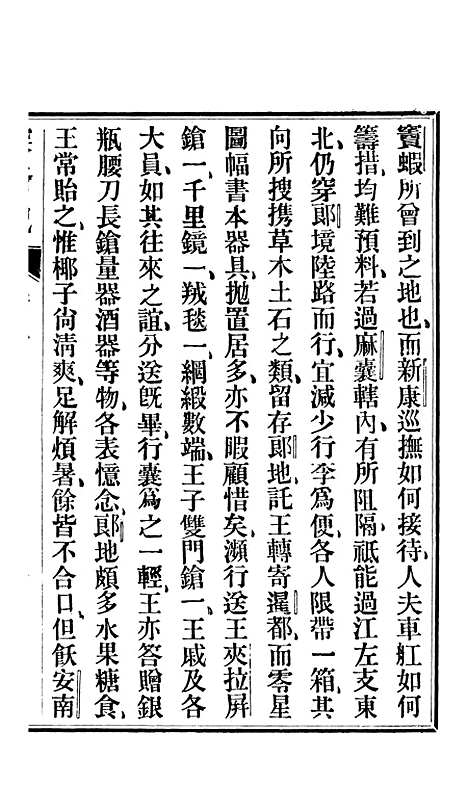 賓蝦所曾到之地也、而新康巡撫如何接待、人夫車舡如何
籌措、均難預料、若過麻囊轄內、有所阻隔、祇能過江左支東
北、仍穿郞境陸路而行、宜減少行李爲便、各人限帶一箱、其
向所搜攜草木土石之類、留存郞地、託王轉寄暹都、而零星
圖幅書本器具、拋置居多、亦不暇顧惜矣、瀕行送王夾拉屛
鎗一、千里鏡一、羢毯一、綢緞數端、王子雙門鎗一、王戚及各
大員、如其往來之誼、分送旣畢、行囊爲之一輕、王亦答贈銀
瓶腰刀長鎗量器酒器等物、各表憶念、郞地頗多水果糖食、
王常貽之、惟椰子尙淸爽、足解煩暑、餘皆不合口、但飫安南